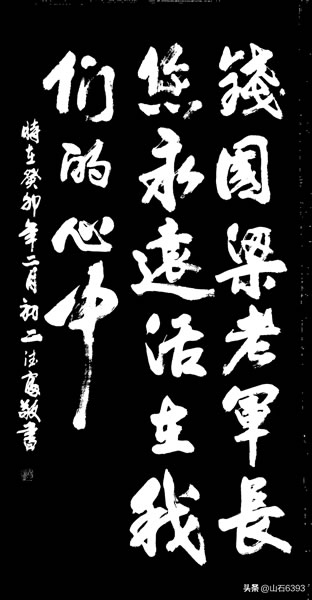 錢国梁老軍長
您永遠活在我
们的心中
時在癸卯年二月初二法寅敬書
头条 @山石6393